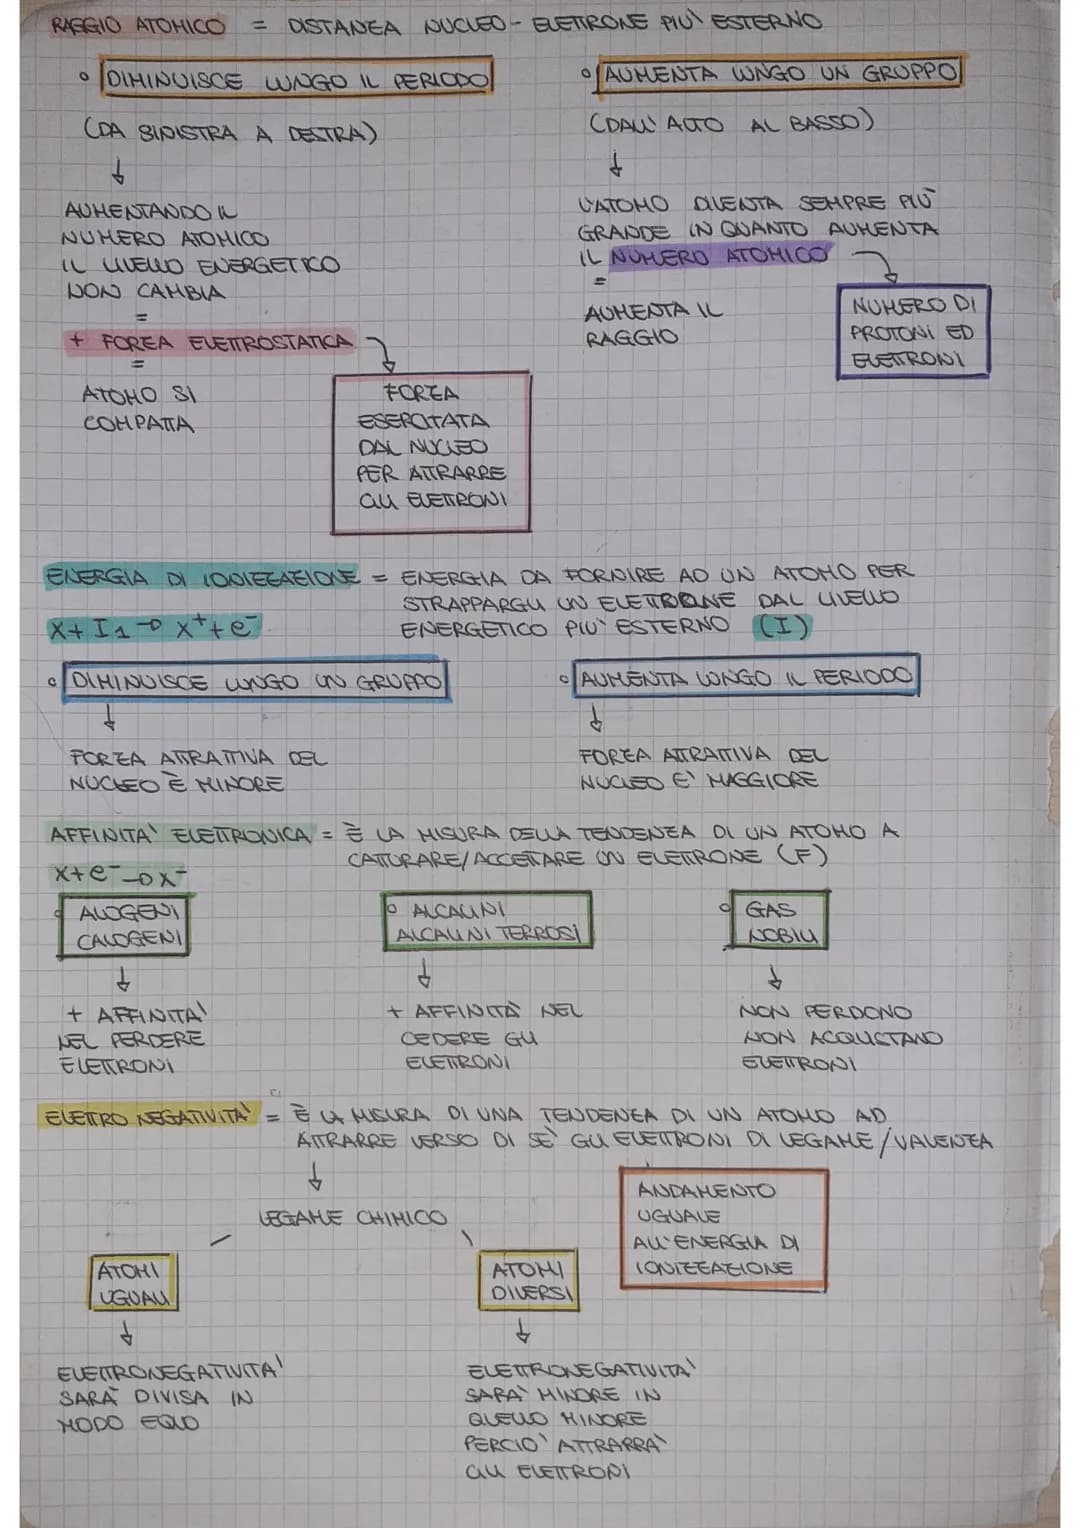 RAGGIO ATOMICO = DISTANZA NUCLEO - ELETTRONE PIU' ESTERNO
DIMINUISCE LUNGO IL PERIODO
(DA SINISTRA A DESTRA)
↓
AUMENTANDO IL
NUMERO ATOMICO
IL LIVELLO ENERGETICO
NON CAMBIA
=
+ FORZA ELETTROSTATICA
=
ATOMO SI
COMPATTA
FORZA
ESERCITATA
DAL NUCLEO
PER ATTRARRE
GLI ELETTRONI
AUMENTA LUNGO UN GRUPPO
(DALL'ALTO AL BASSO)
↓
L'ATOMO DIVENTA SEMPRE PIU'
GRANDE IN QUANTO AUMENTA
IL NUMERO ATOMICO
=
AUMENTA IL
RAGGIO
NUMERO DI
PROTONI ED
ELETTRONI
ENERGIA DI IONIZZAZIONE = ENERGIA DA FORNIRE AD UN ATOMO PER
STRAPPARGLI UN ELETTRONE DAL LIVELLO
X + I1 → X⁺ + e⁻ ENERGETICO PIU' ESTERNO (I)
DIMINUISCE LUNGO UN GRUPPO
↓
FORZA ATTRATTIVA DEL
NUCLEO È MINORE
AUMENTA LUNGO IL PERIODO
↓
FORZA ATTRATTIVA DEL
NUCLEO E' MAGGIORE
AFFINITA' ELETTRONICA = È LA MISURA DELLA TENDENZA DI UN ATOMO A
CATTURARE/ACCETTARE UN ELETTRONE (F)
X + e⁻ → X⁻
ALOGENI
CALOGENI
↓
+ AFFINITA'
NEL PERDERE
ELETTRONI
ALCALINI
ALCALINI TERROSI
↓
+ AFFINITÀ NEL
CEDERE GLI
ELETTRONI
GAS
NOBILI
↓
NON PERDONO
NON ACQUISTANO
ELETTRONI
ELETTRO NEGATIVITA' = È LA MISURA DI UNA TENDENZA DI UN ATOMO AD
ATTRARRE VERSO DI SE' GLI ELETTRONI DI LEGAME/VALENZA
↓
LEGAME CHIMICO
ANDAMENTO
UGUALE
ALL'ENERGIA DI
IONIZZAZIONE
ATOMI
UGUALI
↓
ELETTRONEGATIVITA'
SARÀ DIVISA IN
MODO EQUO
ATOMI
DIVERSI
↓
ELETTRONEGATIVITA'
SARA' MINORE IN
QUELLO MINORE
PERCIO' ATTRARRA'
GLI ELETTRONI